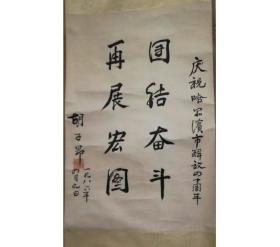 庆祝哈尔滨市解放四十周年
团结奋斗
再展宏图
胡子昂
一九八六年
四月九日